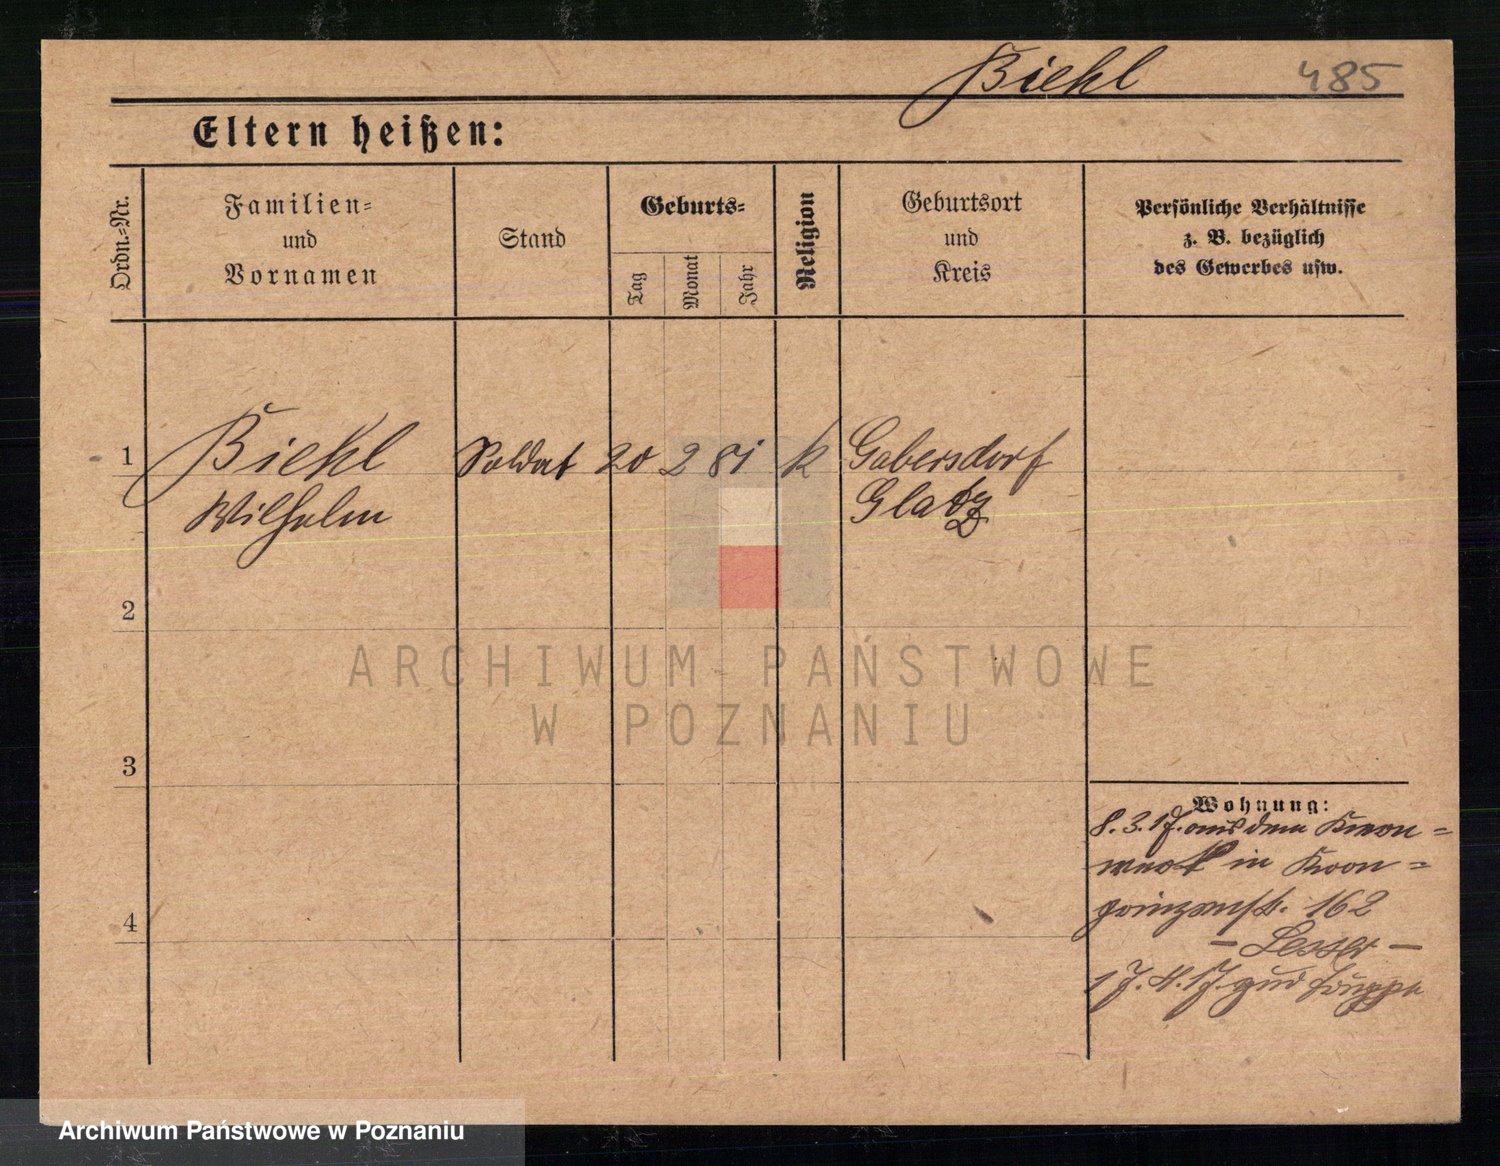 Biehl 485
Eltern heißen:
Ordn.-Nr.
Familien-
und
Vornamen
Stand
Geburts-
Tag
Monat
Jahr
Religion
Geburtsort
und
Kreis
Persönliche Verhältnisse
z. B. bezüglich
des Gewerbes usw.
1 Biehl Soldat 20 2 81 k Gabersdorf
Wilhelm Glatz
2
ARCHIWUM PAŃSTWOWE
W POZNANIU
3
Wohnung:
8.3.17. aus dem Kron=
werk in Kron=
prinzenstr. 162
– Lesser –
17.4.17. zur Truppe
4
Archiwum Państwowe w Poznaniu